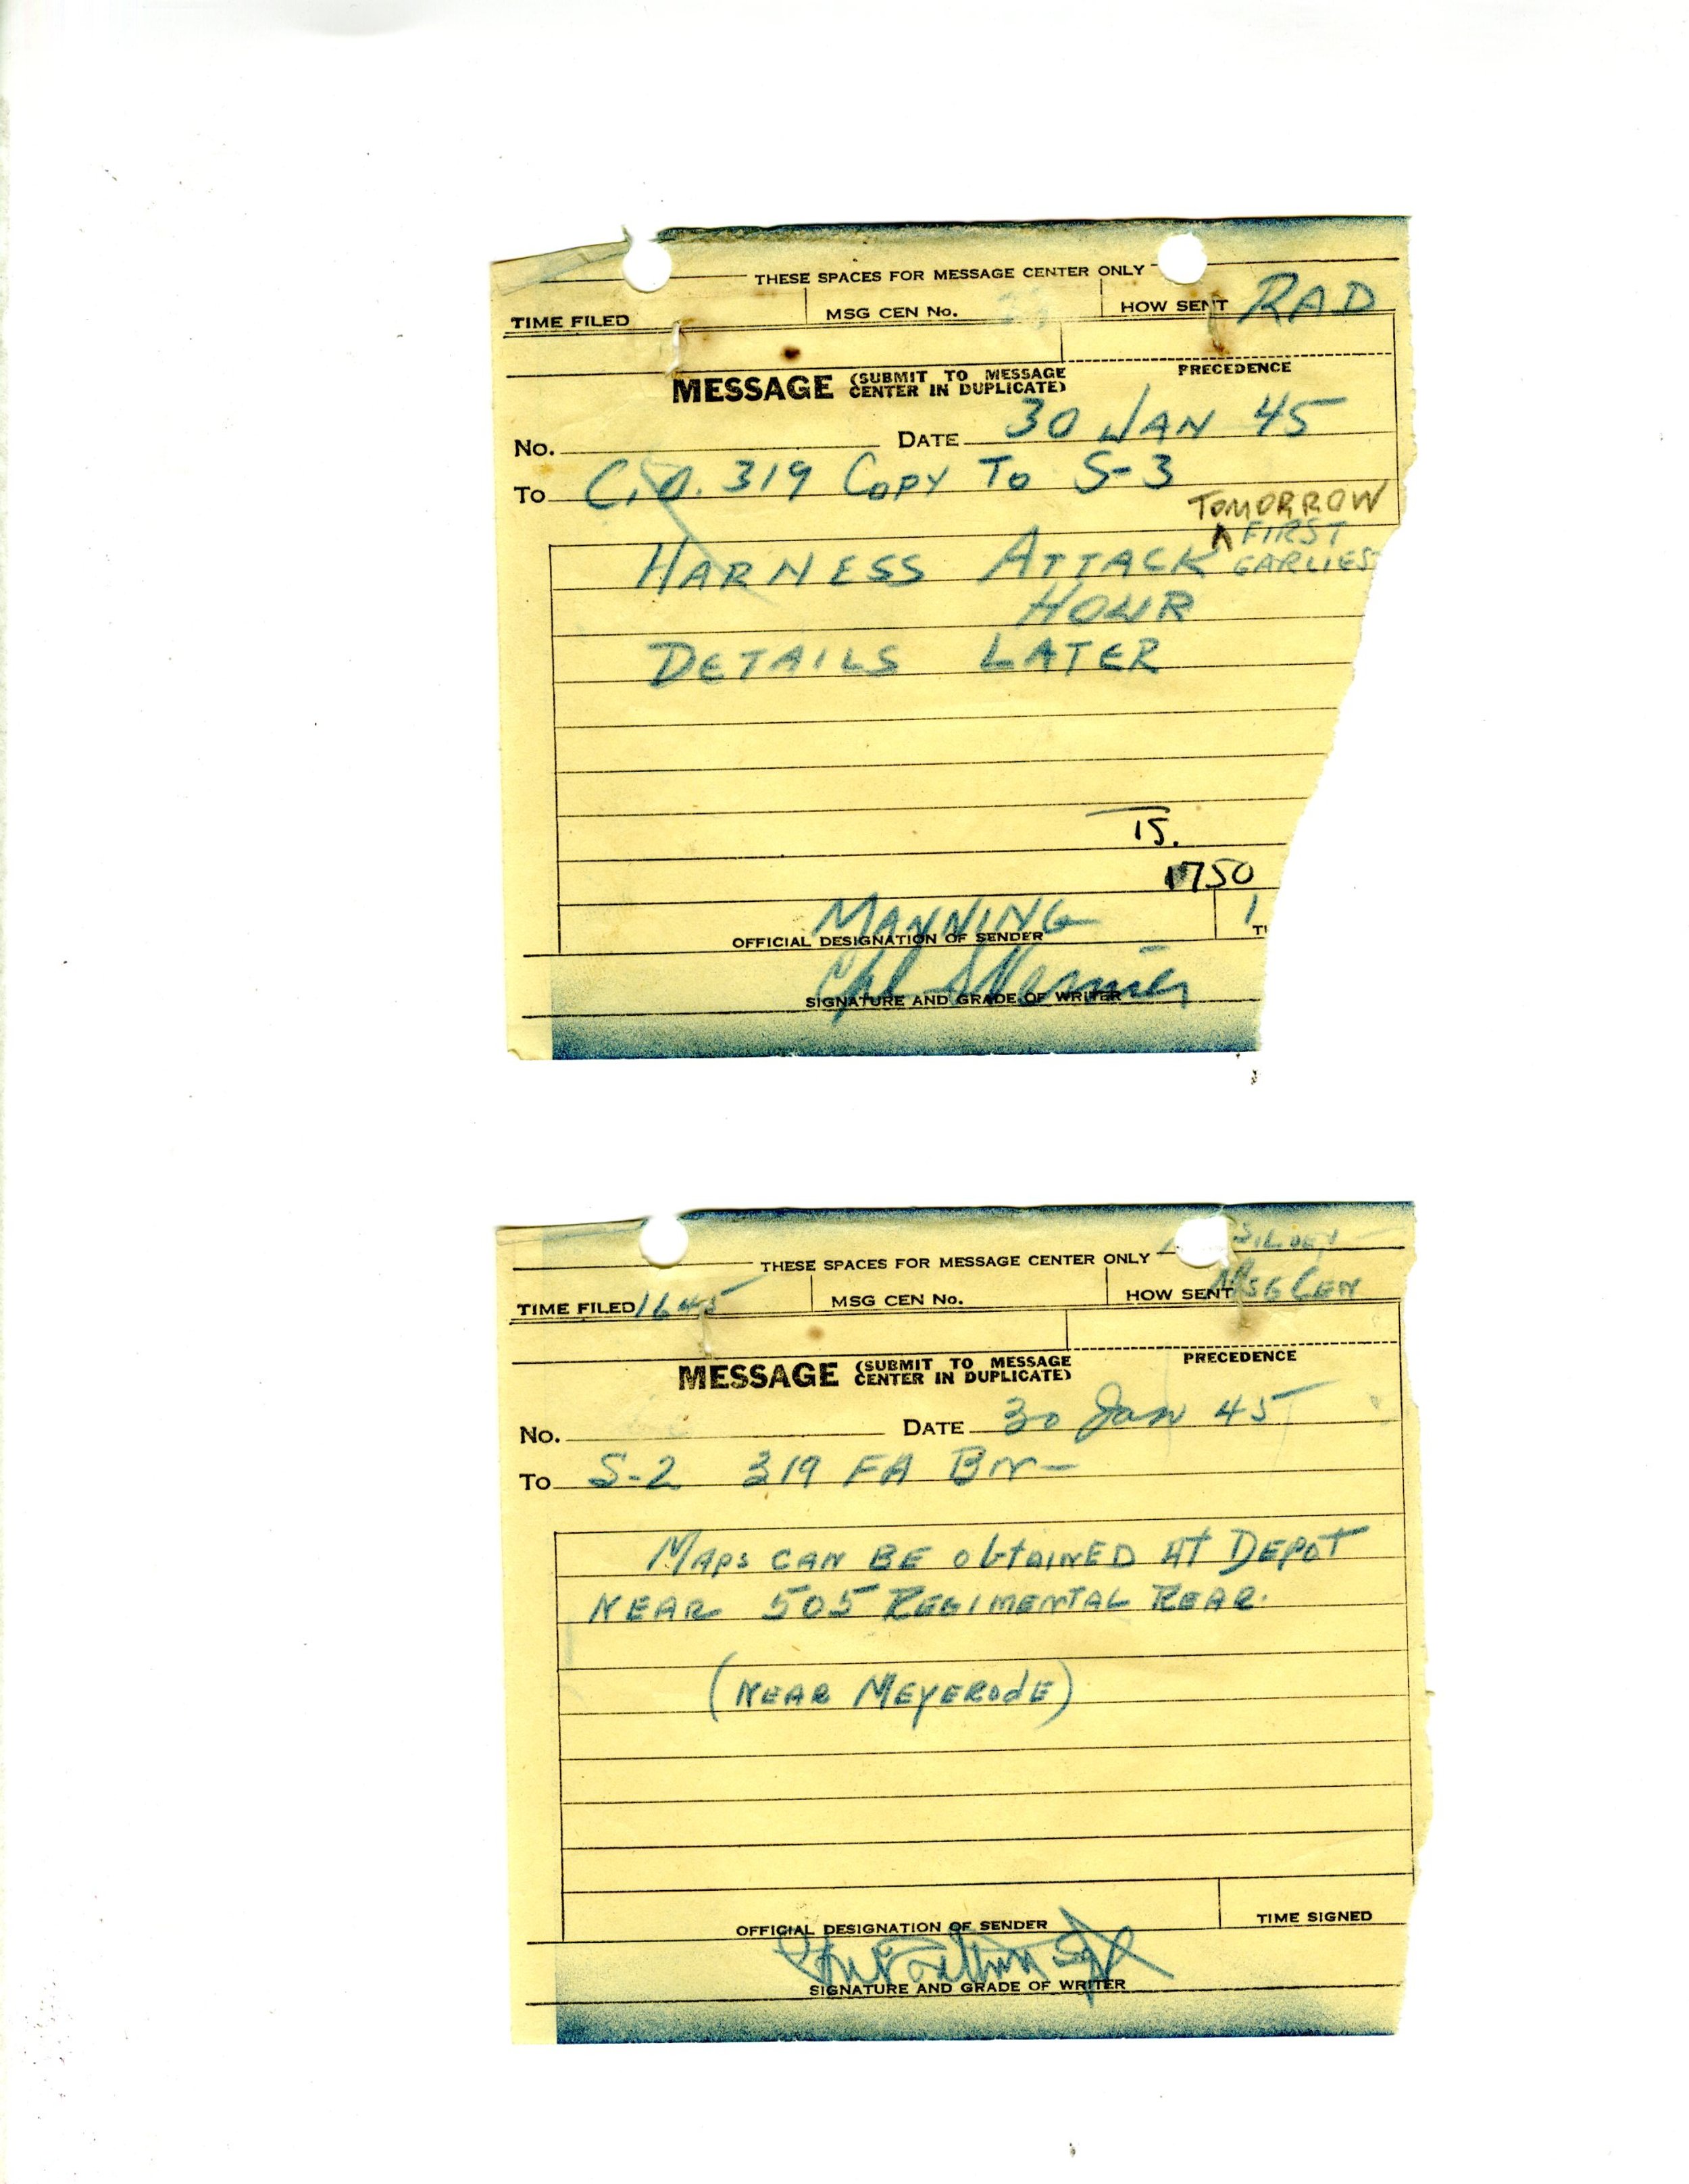 THESE SPACES FOR MESSAGE CENTER ONLY
TIME FILED MSG CEN No. HOW SENT RAD
PRECEDENCE
MESSAGE (SUBMIT TO MESSAGE
CENTER IN DUPLICATE)
No. DATE 30 JAN 45
To C.O. 319 COPY TO S-3
TOMORROW
HARNESS ATTACK ^ FIRST
EARLIEST
HOUR
DETAILS LATER
15.
1750
MANNING
OFFICIAL DESIGNATION OF SENDER
Cpl
SIGNATURE AND GRADE OF WRITER
THESE SPACES FOR MESSAGE CENTER ONLY
TIME FILED 1645 MSG CEN No. HOW SENT MSG CEN
PRECEDENCE
MESSAGE (SUBMIT TO MESSAGE
CENTER IN DUPLICATE)
No. DATE 30 Jan 45
To S-2 319 FA BN-
MAPS CAN BE ObtAINED At DEPOT
NEAR 505 REGIMENTAL REAR.
(NEAR MEYEROdE)
OFFICIAL DESIGNATION OF SENDER TIME SIGNED
SIGNATURE AND GRADE OF WRITER